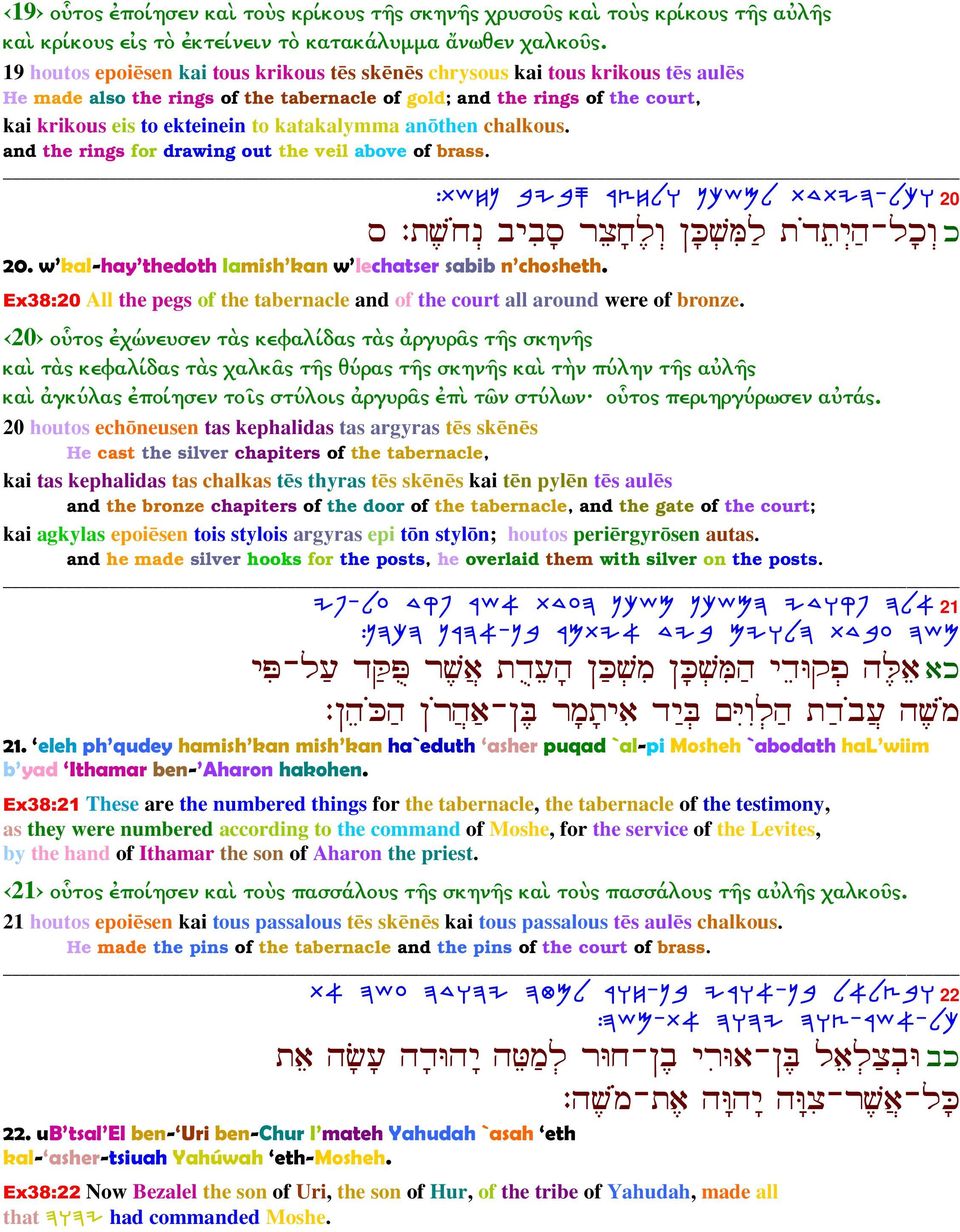 ‹19› οὗτος ἐποίησεν καὶ τοὺς κρίκους τῆς σκηνῆς χρυσοῦς καὶ τοὺς κρίκους τῆς αὐλῆς
καὶ κρίκους εἰς τὸ ἐκτείνειν τὸ κατακάλυμμα ἄνωθεν χαλκοῦς.
19 houtos epoiēsen kai tous krikous tēs skēnēs chrysous kai tous krikous tēs aulēs
He made also the rings of the tabernacle of gold; and the rings of the court,
kai krikous eis to ekteinein to katakalymma anōthen chalkous.
and the rings for drawing out the veil above of brass.
20 𐤅𐤊𐤋-𐤄𐤉𐤕𐤃𐤕 𐤋𐤌𐤔𐤊𐤍 𐤅𐤋𐤇𐤑𐤓 𐤎𐤁𐤉𐤁 𐤍𐤇𐤔𐤕:
כ וְכָל־הַיְתֵדֹת לַמִּשְׁכָּן וְלֶחָצֵר סָבִיב נְחֹשֶׁת׃ ס
20. w’kal-hay’thedoth lamish’kan w’lechatser sabib n’chosheth.
Ex38:20 All the pegs of the tabernacle and of the court all around were of bronze.
‹20› οὗτος ἐχώνευσεν τὰς κεφαλίδας τὰς ἀργυρᾶς τῆς σκηνῆς
καὶ τὰς κεφαλίδας τὰς χαλκᾶς τῆς θύρας τῆς σκηνῆς καὶ τὴν πύλην τῆς αὐλῆς
καὶ ἀγκύλας ἐποίησεν τοῖς στύλοις ἀργυρᾶς ἐπὶ τῶν στύλων· οὗτος περιηργύρωσεν αὐτάς.
20 houtos echōneusen tas kephalidas tas argyras tēs skēnēs
He cast the silver chapiters of the tabernacle,
kai tas kephalidas tas chalkas tēs thyras tēs skēnēs kai tēn pylēn tēs aulēs
and the bronze chapiters of the door of the tabernacle, and the gate of the court;
kai agkylas epoiēsen tois stylois argyras epi tōn stylōn; houtos periērgyrōsen autas.
and he made silver hooks for the posts, he overlaid them with silver on the posts.
21 𐤀𐤋𐤄 𐤐𐤒𐤅𐤃𐤉 𐤄𐤌𐤔𐤊𐤍 𐤌𐤔𐤊𐤍 𐤄𐤏𐤃𐤕 𐤀𐤔𐤓 𐤐𐤒𐤃 𐤏𐤋-𐤐𐤉
𐤌𐤔𐤄 𐤏𐤁𐤃𐤕 𐤄𐤋𐤅𐤉𐤌 𐤁𐤉𐤃 𐤀𐤉𐤕𐤌𐤓 𐤁𐤍-𐤀𐤄𐤓𐤍 𐤄𐤊𐤄𐤍:
כא אֵלֶּה פְקוּדֵי הַמִּשְׁכָּן מִשְׁכַּן הָעֵדֻת אֲשֶׁר פֻּקַּד עַל־פִּי
מֹשֶׁה עֲבֹדַת הַלְוִיִּם בְּיַד אִיתָמָר בֶּן־אַהֲרֹן הַכֹּהֵן׃
21. ‘eleh ph’qudey hamish’kan mish’kan ha`eduth ‘asher puqad `al-pi Mosheh `abodath haL’wiim
b’yad ‘Ithamar ben-’Aharon hakohen.
Ex38:21 These are the numbered things for the tabernacle, the tabernacle of the testimony,
as they were numbered according to the command of Moshe, for the service of the Levites,
by the hand of Ithamar the son of Aharon the priest.
‹21› οὗτος ἐποίησεν καὶ τοὺς πασσάλους τῆς σκηνῆς καὶ τοὺς πασσάλους τῆς αὐλῆς χαλκοῦς.
21 houtos epoiēsen kai tous passalous tēs skēnēs kai tous passalous tēs aulēs chalkous.
He made the pins of the tabernacle and the pins of the court of brass.
22 𐤅𐤁𐤑𐤋𐤀𐤋 𐤁𐤍-𐤀𐤅𐤓𐤉 𐤁𐤍-𐤇𐤅𐤓 𐤋𐤌𐤈𐤄 𐤉𐤄𐤅𐤃𐤄 𐤏𐤔𐤄 𐤀𐤕
𐤊𐤋-𐤀𐤔𐤓-𐤑𐤅𐤄 𐤉𐤄𐤅𐤄 𐤀𐤕-𐤌𐤔𐤄:
כב וּבְצַלְאֵל בֶּן־אוּרִי בֶן־חוּר לְמַטֵּה יְהוּדָה עָשָׂה אֵת
כָּל־אֲשֶׁר־צִוָּה יְהוָה אֶת־מֹשֶׁה׃
22. uB’tsal’El ben-‘Uri ben-Chur l’mateh Yahudah `asah ‘eth
kal-‘asher-tsiuah Yahúwah ‘eth-Mosheh.
Ex38:22 Now Bezalel the son of Uri, the son of Hur, of the tribe of Yahudah, made all
that 𐤉𐤄𐤅𐤄 had commanded Moshe.